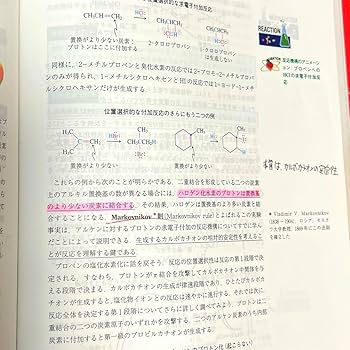 選択的な求電子付加反応
CH₃CH=CH₂
置換がより少ない炭素：
プロトンはここに付加する
2-クロロプロパン
1-クロロプロパンは生成しない
REACTION
反応機構のアニメーション：プロペンへのHClの求電子付加反応
同様に，2-メチルプロペンと臭化水素の反応では2-ブロモ-2-メチルプロパンのみが得られ，1-メチルシクロヘキセンとHIの反応では1-ヨード-1-メチルシクロヘキサンだけが生成する．
位置選択的な付加反応のさらにもう二つの例
置換がより少ない
置換がより少ない
これらの例から次のことが明らかである．二重結合を形成している二つの炭素上のアルキル置換基の数が異なる場合には，ハロゲン化水素のプロトンは置換基のより少ない炭素に結合する．その結果，ハロゲンは置換基のより多い炭素と結合することになる．Markovnikov*則(Markovnikov rule)とよばれるこの実験事実は，アルケンに対するプロトンの求電子付加反応機構についてすでに学んだことによって説明できる．生成するカルボカチオンの相対的安定性を考えることが反応を理解する鍵である．
本質は、カルボカチオンの安定性!
プロペンの塩化水素化に話を戻そう．反応の位置選択性は反応の第1段階で決定される．すなわち，プロトンがπ結合を攻撃してカルボカチオン中間体を与える段階で決まる．カルボカチオンの生成が律速段階であり，ひとたびカルボカチオンが生成すると，塩化物イオンとの反応は速やかに進行する．それでは，反応全体を決定する第1段階についてさらに詳しく調べてみよう．プロトンは二重結合の二つの炭素原子のいずれかを攻撃する．二つのアルケン炭素のうち内部炭素に付加すると第一級のプロピルカチオンが生成する．
* Vladimir V. Markovnikov (1838～1904)，ロシア，モスクワ大学教授．1869年にこの法則を確立した
プロトン化（起こらない）